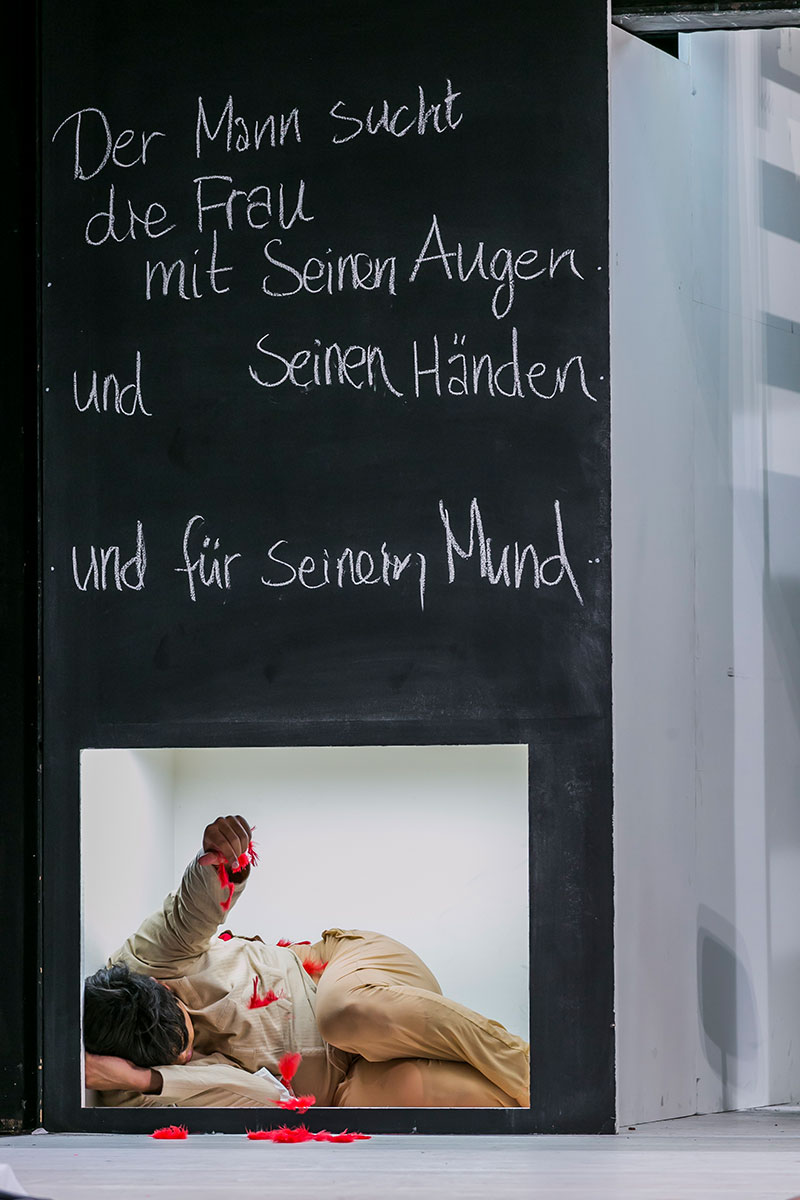 Der Mann sucht
die Frau
mit Seinen Augen
und Seinen Händen
und für seinem Mund